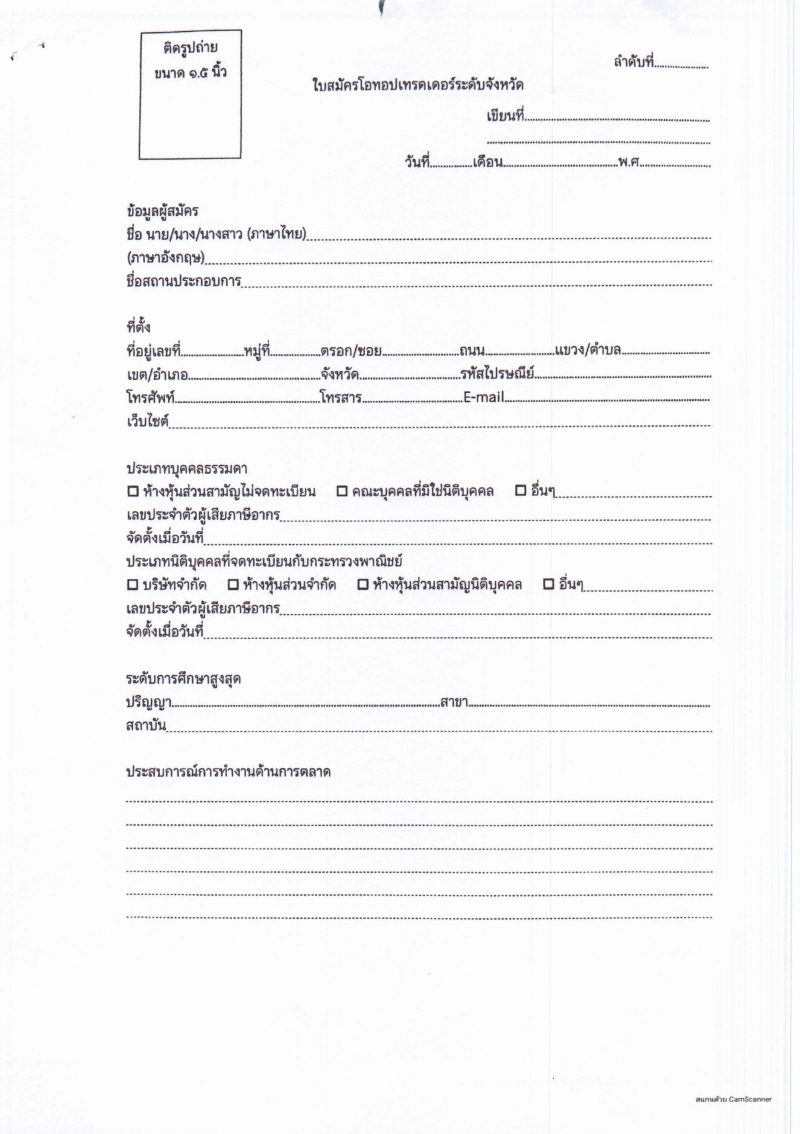 ติดรูปถ่าย
ขนาด ๑.๕ นิ้ว
ลำดับที่....................
ใบสมัครโอทอปเทรดเดอร์ระดับจังหวัด
เขียนที่......................................................................
......................................................................
วันที่................เดือน...........................................พ.ศ...........................
ข้อมูลผู้สมัคร
ชื่อ นาย/นาง/นางสาว (ภาษาไทย)......................................................................
(ภาษาอังกฤษ)......................................................................
ชื่อสถานประกอบการ......................................................................
ที่ตั้ง
ที่อยู่เลขที่........................หมู่ที่...................ตรอก/ซอย.............................ถนน..........................แขวง/ตำบล.................................
เขต/อำเภอ..................................................จังหวัด......................................รหัสไปรษณีย์......................................................................
โทรศัพท์......................................................โทรสาร......................................E-mail......................................................................
เว็บไซต์......................................................................
ประเภทบุคคลธรรมดา
☐ ห้างหุ้นส่วนสามัญไม่จดทะเบียน ☐ คณะบุคคลที่มิใช่นิติบุคคล ☐ อื่นๆ..................................................
เลขประจำตัวผู้เสียภาษีอากร......................................................................
จัดตั้งเมื่อวันที่......................................................................
ประเภทนิติบุคคลที่จดทะเบียนกับกระทรวงพาณิชย์
☐ บริษัทจำกัด ☐ ห้างหุ้นส่วนจำกัด ☐ ห้างหุ้นส่วนสามัญนิติบุคคล ☐ อื่นๆ..................................................
เลขประจำตัวผู้เสียภาษีอากร......................................................................
จัดตั้งเมื่อวันที่......................................................................
ระดับการศึกษาสูงสุด
ปริญญา......................................................................สาขา......................................................................
สถาบัน......................................................................
ประสบการณ์การทำงานด้านการตลาด
......................................................................
......................................................................
......................................................................
......................................................................
......................................................................
......................................................................
สแกนด้วย CamScanner